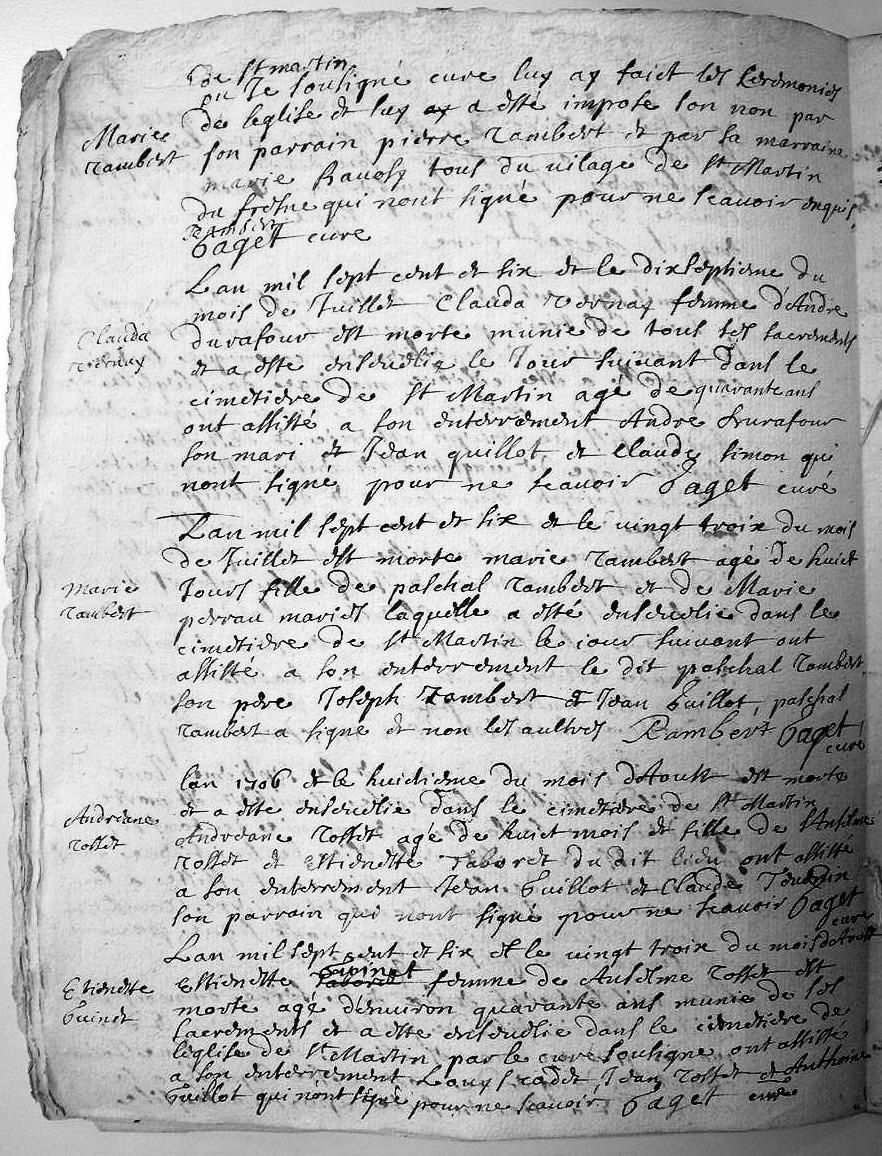 de st martin
ou Je soussigné curé luy ay faict les ceremonies
de leglise et luy a esté imposé son non par
Marie
rambert
son parrain pierre rambert et par sa marraine
marie tous du vilage de St Martin
du fresne qui nont signé pour ne scavoir enquis
rambert
Paget curé
Lan mil sept cent et six et le dixseptieme du
mois de Juillet Clauda vernay femme d'Andre
Clauda
vernay
durafour est morte munie de tous ses sacrements
et a esté ensevelie le Jour suivant dans le
cimetiere de St Martin agé de quarante ans
ont assisté a son enterrement Andre Durafour
son mari et Jean guillot et claude simon qui
nont signé pour ne scavoir Paget curé
Lan mil sept cent et six et le vingt troix du mois
de Juillet est morte marie rambert agé de huict
Marie
rambert
Jours fille de paschal rambert et de Marie
perrau mariés laquelle a esté ensevelie dans le
cimetiere de St Martin le jour suivant ont
assisté a son enterrement le dit paschal rambert
son pere Joseph rambert et Jean Guillot, paschal
rambert a signé et non les aultres Rambert Paget
curé
lan 1706 et le huictieme du mois d'Aoust est morte
et a esté ensevelie dans le cimetiere de St Martin
Andreane
rosset
Andreane rosset agé de huict mois et fille de Anselme
rosset et Estienette taboret du dit lieu ont assisté
a son enterrement Jean Guillot et Claude
son parrain qui nont signé pour ne scavoir Paget
curé
Lan mil sept cent et six et le vingt troix du mois d'Aoust
Etienette
Guinet
Estienette Guinet femme de Anselme rosset est
morte agé d'environ quarante ans munie de ses
sacrements et a esté ensevelie dans le cimetiere de
leglise de St Martin par le curé soussigné ont assisté
a son enterrement Louys cadet Jean rosset et Anthoine
Guillot qui nont signé pour ne scavoir Paget curé